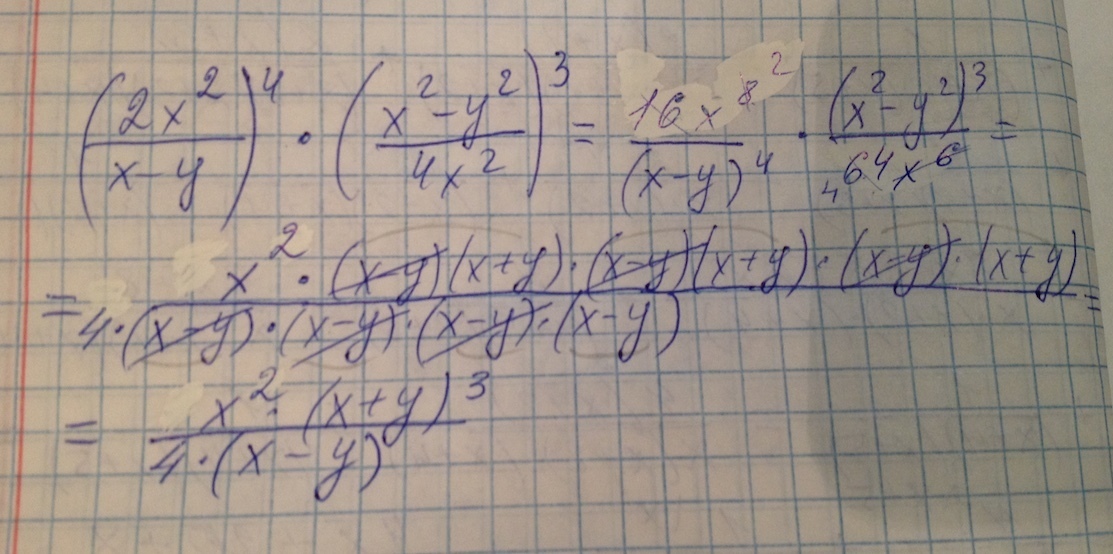 (2x²/(x-y))⁴ · ((x²-y²)/(4x²))³ = 16x⁸ ²/(x-y)⁴ · (x²-y²)³/(₄64x⁶) =
= x² · (x-y)(x+y)·(x-y)(x+y)·(x-y)·(x+y)/(4·(x-y)·(x-y)·(x-y)·(x-y)) =
= x²·(x+y)³/(4·(x-y))